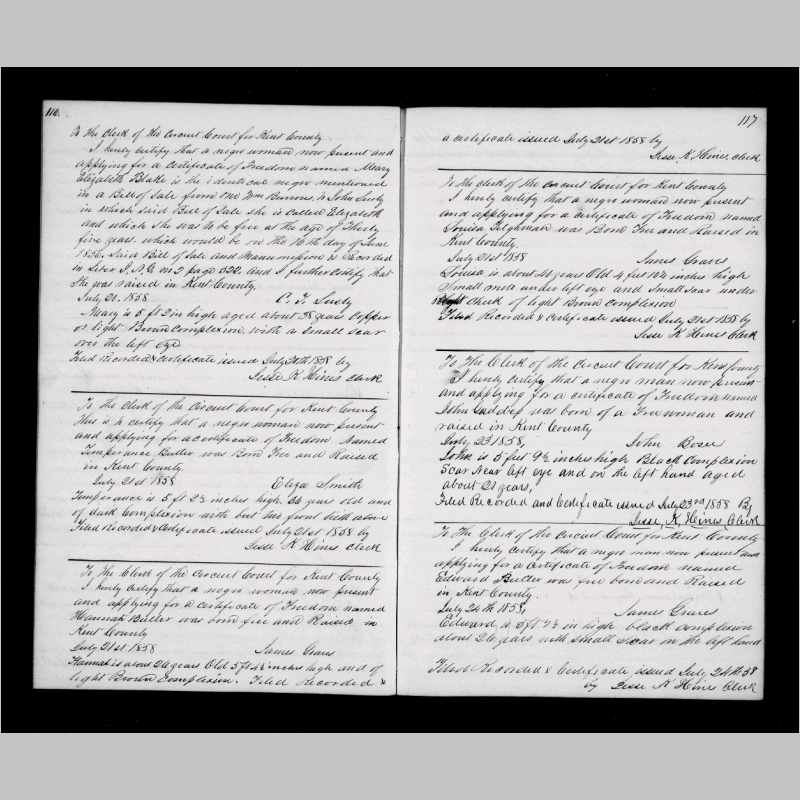 116
To the Clerk of the Circuit Court for Kent County
I hereby certify that a negro woman now present and
applying for a Certificate of Freedom named Mary
Elizabeth Blake is the identical negro mentioned
in a Bill of Sale from Wm Burnes to John Lusby
in which said Bill of Sale she is called Elizabeth
and which she was to be free at the age of Thirty
five years which would be on the 16th day of June
Said Bill of Sale and Manumission is Recorded
in Liber J. N. G. No 2 page 322. and I further certify that
She was raised in Kent County.
July 21. 1858 C. F. Lusby
Mary is 5 ft 2 in high aged about 38 years Copper
or light Brown Complexion with a small scar
over the left eye
Filed recorded & certificate issued July 20th 1858 by
Jesse K Hines Clerk
To the clerk of the Circuit Court for Kent County
This is to certify that a negro woman now present
and applying for a certificate of Freedom named
Temperance Butler was Born Free and Raised
in Kent County
July 21st 1858 Eliza Smith
Temperance is 5 ft 2½ inches high 24 years old and
of dark Complexion with but two front teeth above
Filed Recorded & Certificate issued July 21st 1858 by
Jesse K Hines Clerk
To the Clerk of the Circuit Court for Kent County
I hereby certify that a negro woman now present
and applying for a Certificate of Freedom named
Hannah Butler was born free and Raised in
Kent County
July 21st 1858 James Graves
Hannah is about 26 years Old 5 ft inches high and of
light Brown Complexion. Filed Recorded &
117
a certificate issued July 21st 1858 by
Jesse K Hines Clerk
To the clerk of the circuit Court for Kent County
I hereby certify that a negro woman now present
and applying for a certificate of Freedom named
Louisa Tilghman was Born Free and Raised in
Kent County
July 21st 1858 James Graves
Louisa is about years Old 4 feet 10½ inches high
Small mole under left eye and small scar under
right cheek of light Brown Complexion
Filed Recorded & certificate issued July 21st 1858 by
Jesse K Hines Clerk
To The Clerk of the Circuit Court for Kent County
I hereby certify that a negro man now present
and applying for a certificate of Freedom named
John was born of a Free woman and
raised in Kent County
July 23 1858, John Boser
John is 5 feet 9½ inches high Black Complexion
Scar Near left eye and on the left hand aged
about 21 years,
Filed Recorded and Certificate issued July 23rd 1858 By
Jesse, K, Hines, Clerk
To The Clerk of the Circuit Court for Kent County
I hereby certify that a negro man now present and
applying for a certificate of Freedom named
Edward Butler was free born and Raised
in Kent County.
July 24th 1858, James Graves
Edward, is 5 ft 7½ in high black complexion
about 26 years with small Scar on the left hand
Filed Recorded & Certificate issued July 24th 58
by Jesse K Hines Clerk